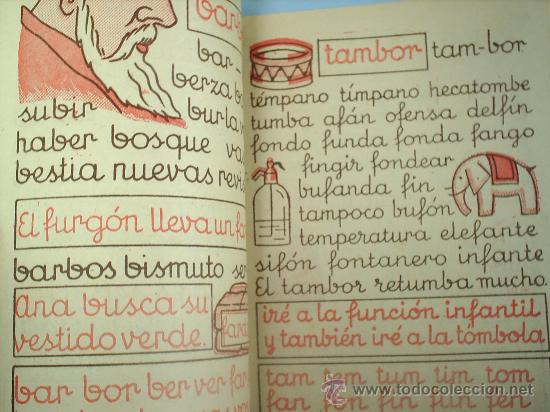 bar
berza
subir burla
haber bosque
bestia nuevas
El furgón lleva un
barbos bismuto
Ana busca su
vestido verde.
bar bor ber ver
tambor tam-bor
témpano tímpano hecatombe
tumba afán ofensa delfín
fondo funda fonda fango
fingir fondear
bufanda fin -
tampoco bufón
temperatura elefante
sifón fontanero infante
El tambor retumba mucho.
iré a la función infantil
y también iré a la tómbola
tam tem tum tim tom
fan fen fin fun fen
todocoleccion
www.todocoleccion.net